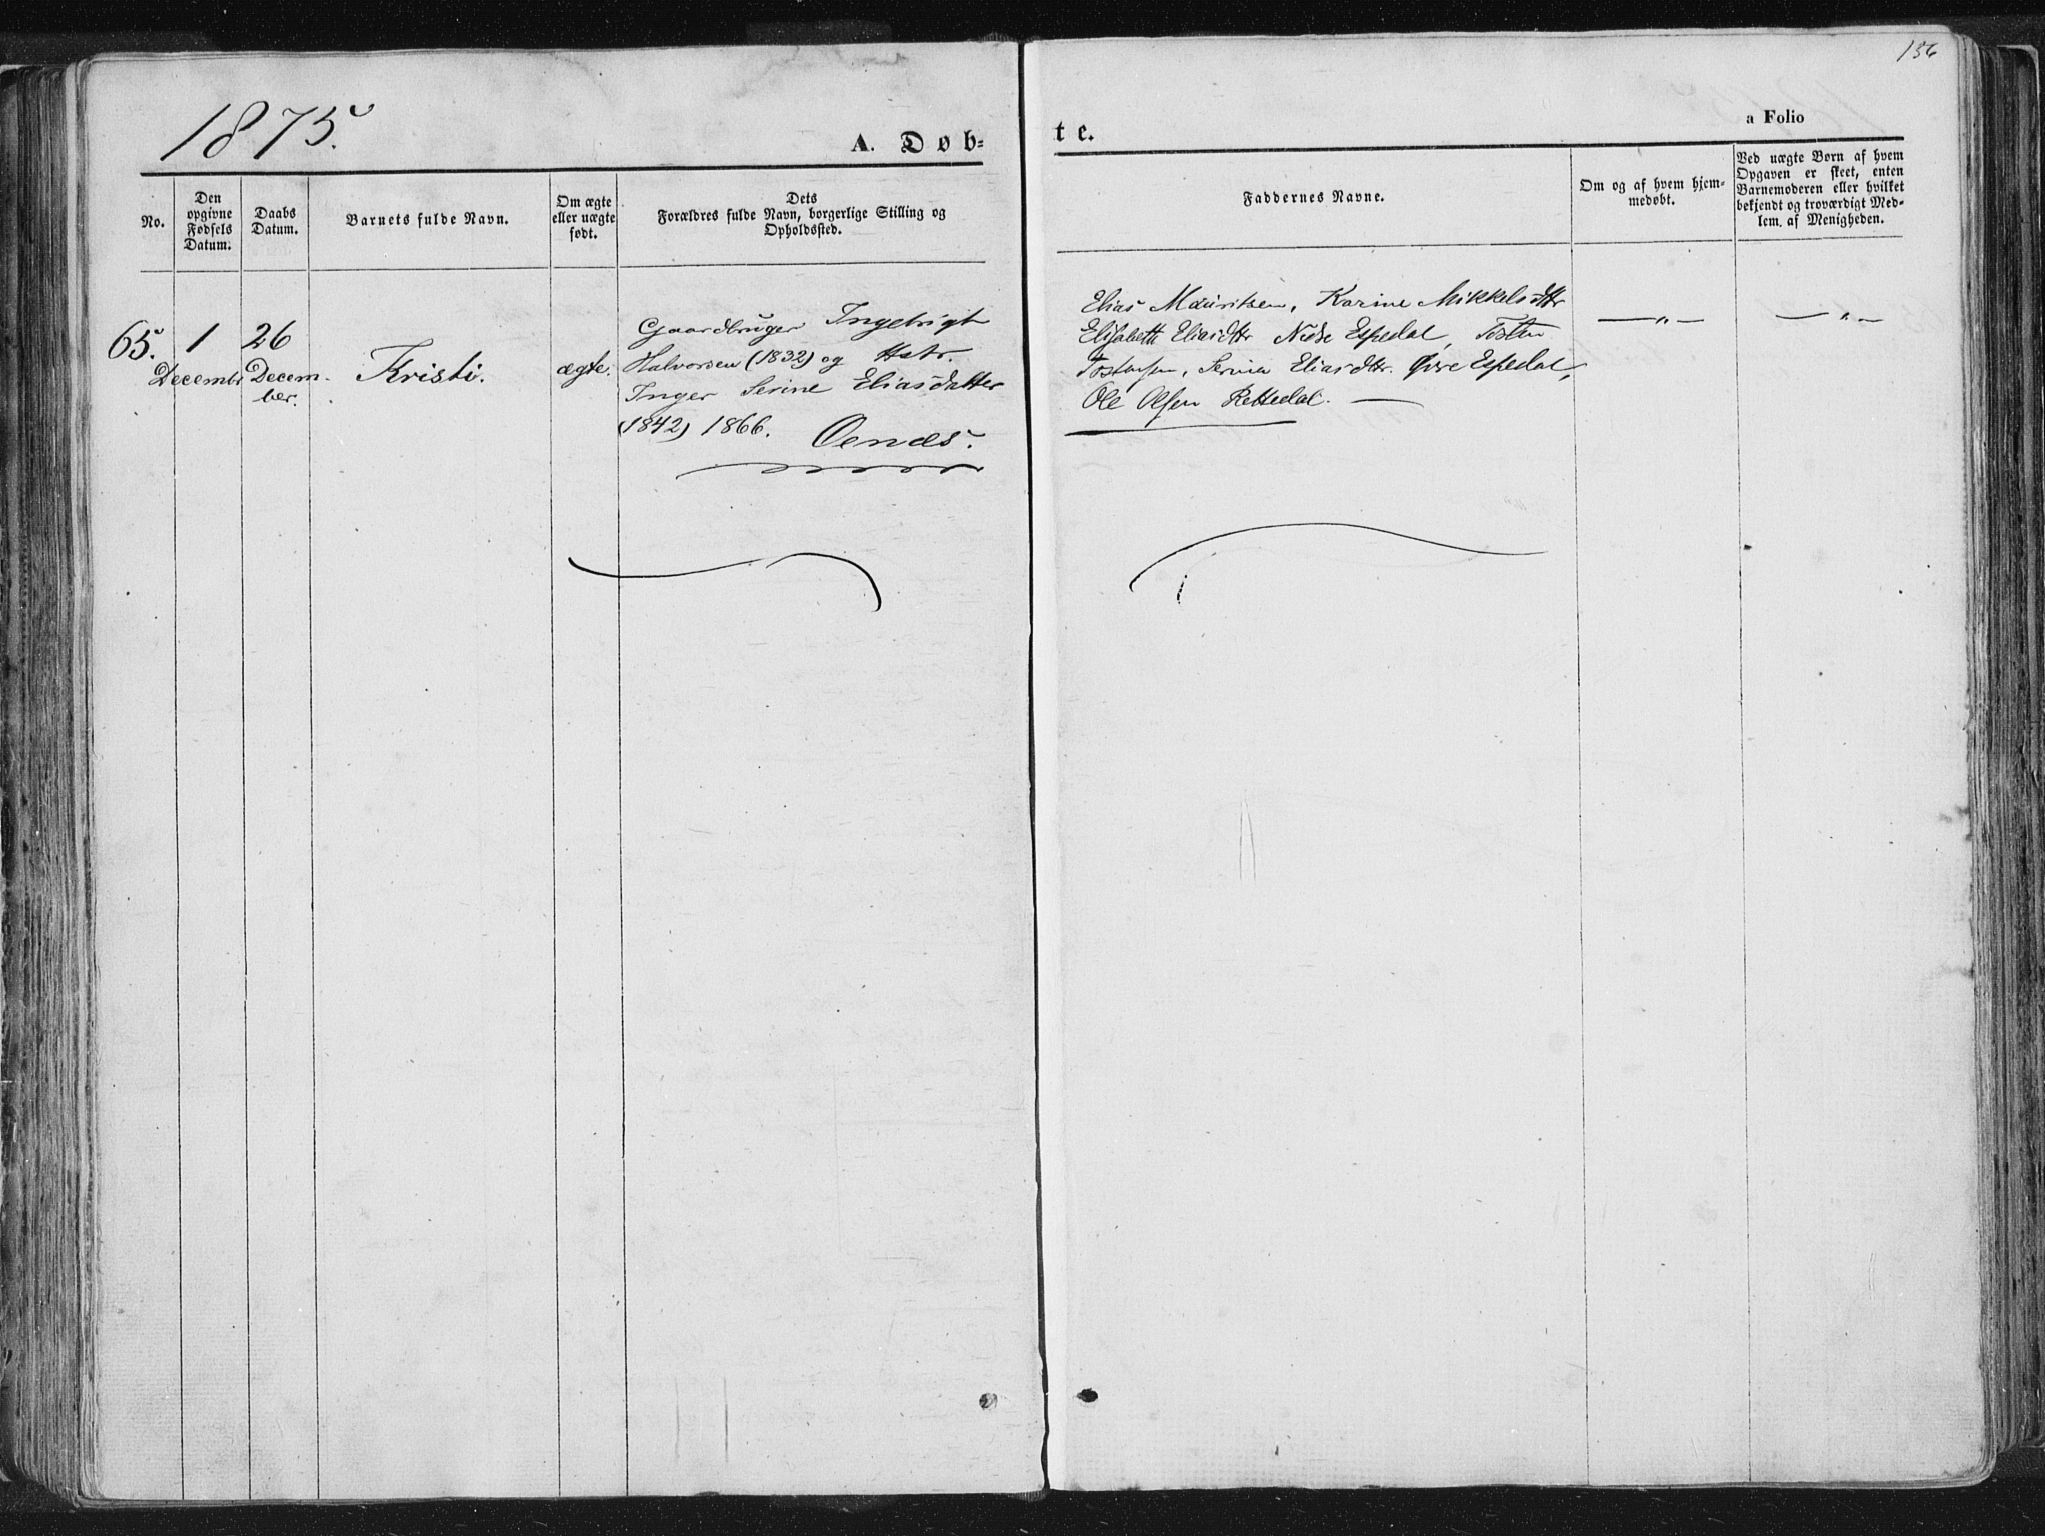 136
1875.
A. Døb=
te.
a Folio
No.
Den
opgivne
Fødsels
Datum.
Daabs
Datum.
Barnets fulde Navn.
Om ægte
eller uægte
født.
Dets
Forældres fulde Navn, borgerlige Stilling og
Opholdssted.
Faddernes Navne.
Om og af hvem hjem-
medøbt.
Ved uægte Børn af hvem
Opgaven er skeet, enten
Barnemoderen eller hvilket
bekjendt og troværdigt Med-
lem af Menigheden.
65.
1
Decembr
26
Decem-
ber.
Kristi.
ægte.
Gaardbruger Ingebrigt
Halvorsen (1832) og Hstr.
Inger Serine Eliasdatter
(1842) 1866. Oenæs.
Elias Mauritsen, Karine Mikkelsdttr
Elisabeth Eliasdttr Nedre Espedal, Tosten
Tostensen, Serina Eliasdttr. Øvre Espedal,
Ole Olsen Rettedal. —
— " —
— " —